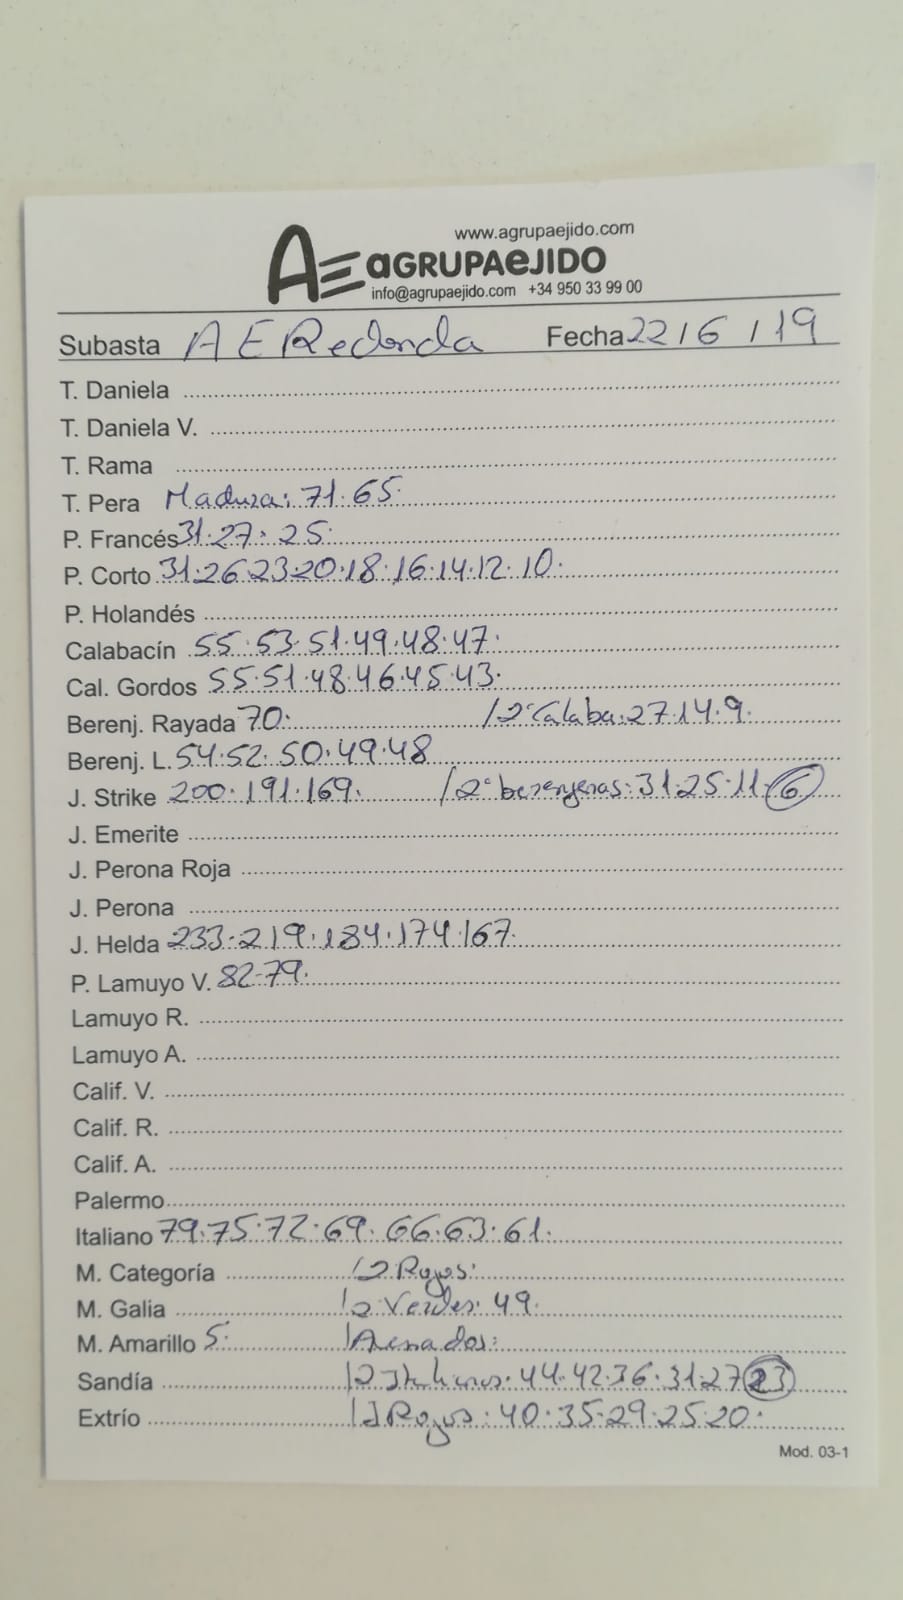 www.agrupaejido.com
AE aGRUPAeJIDO
info@agrupaejido.com +34 950 33 99 00
Subasta A E Redonda Fecha 22/6/19
T. Daniela
T. Daniela V.
T. Rama
T. Pera Madura: 71.65.
P. Francés 31.27.25.
P. Corto 31.26.23.20.18.16.14.12.10.
P. Holandés
Calabacín 55.53.51.49.48.47.
Cal. Gordos 55.51.48.46.45.43.
Berenj. Rayada 70. /2ª Calaba: 27.14.9.
Berenj. L. 54.52.50.49.48
J. Strike 200.191.169. /2ª berenjenas: 31.25.11.6
J. Emerite
J. Perona Roja
J. Perona
J. Helda 233.219.184.174.167.
P. Lamuyo V. 82-79.
Lamuyo R.
Lamuyo A.
Calif. V.
Calif. R.
Calif. A.
Palermo
Italiano 79.75.72.69.66.63.61.
M. Categoría /2 Rojos:
M. Galia /2 Verdes: 49.
M. Amarillo 5. /Asenados:
Sandía /2 Italianos. 44.42.36.31.27.23
Extrío /J Rojos: 40.35.29.25.20.
Mod. 03-1